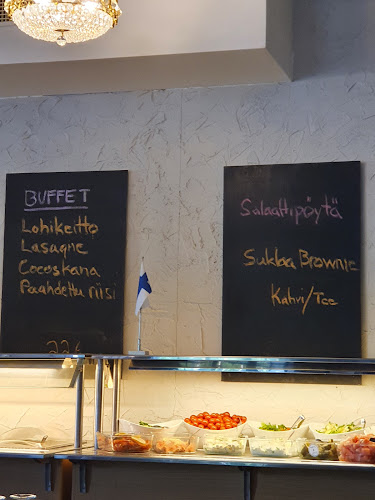 BUFFET
Lohikeitto
Lasagne
Cocoskana
Paahdettu riisi
22€
Salaattipöytä
Suklaa Brownie
Kahvi/Tee